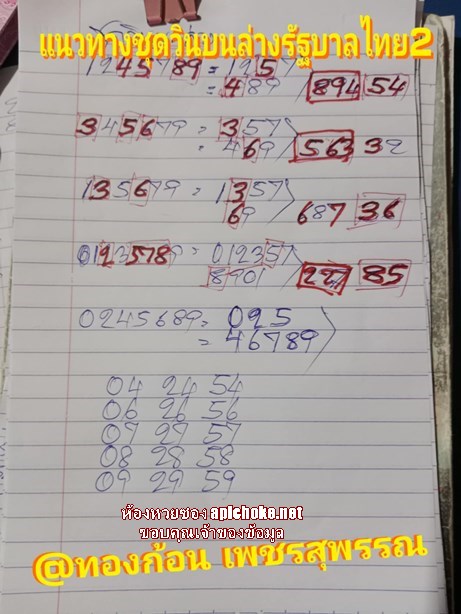 แนวทางชุดวินบนล่างรัฐบาลไทย2
1245789 = 1257
= 489 894 54
345679 = 357
= 469 563 32
135679 = 1357
69 687 36
01235789 = 012357
8901 227 85
0245689 = 025
= 46789
04 24 54
06 26 56
07 27 57
08 28 58
09 29 59
ห้องหวยซอง apichoke.net
ขอบคุณเจ้าของข้อมูล
@ทองก้อน เพชรสุพรรณ